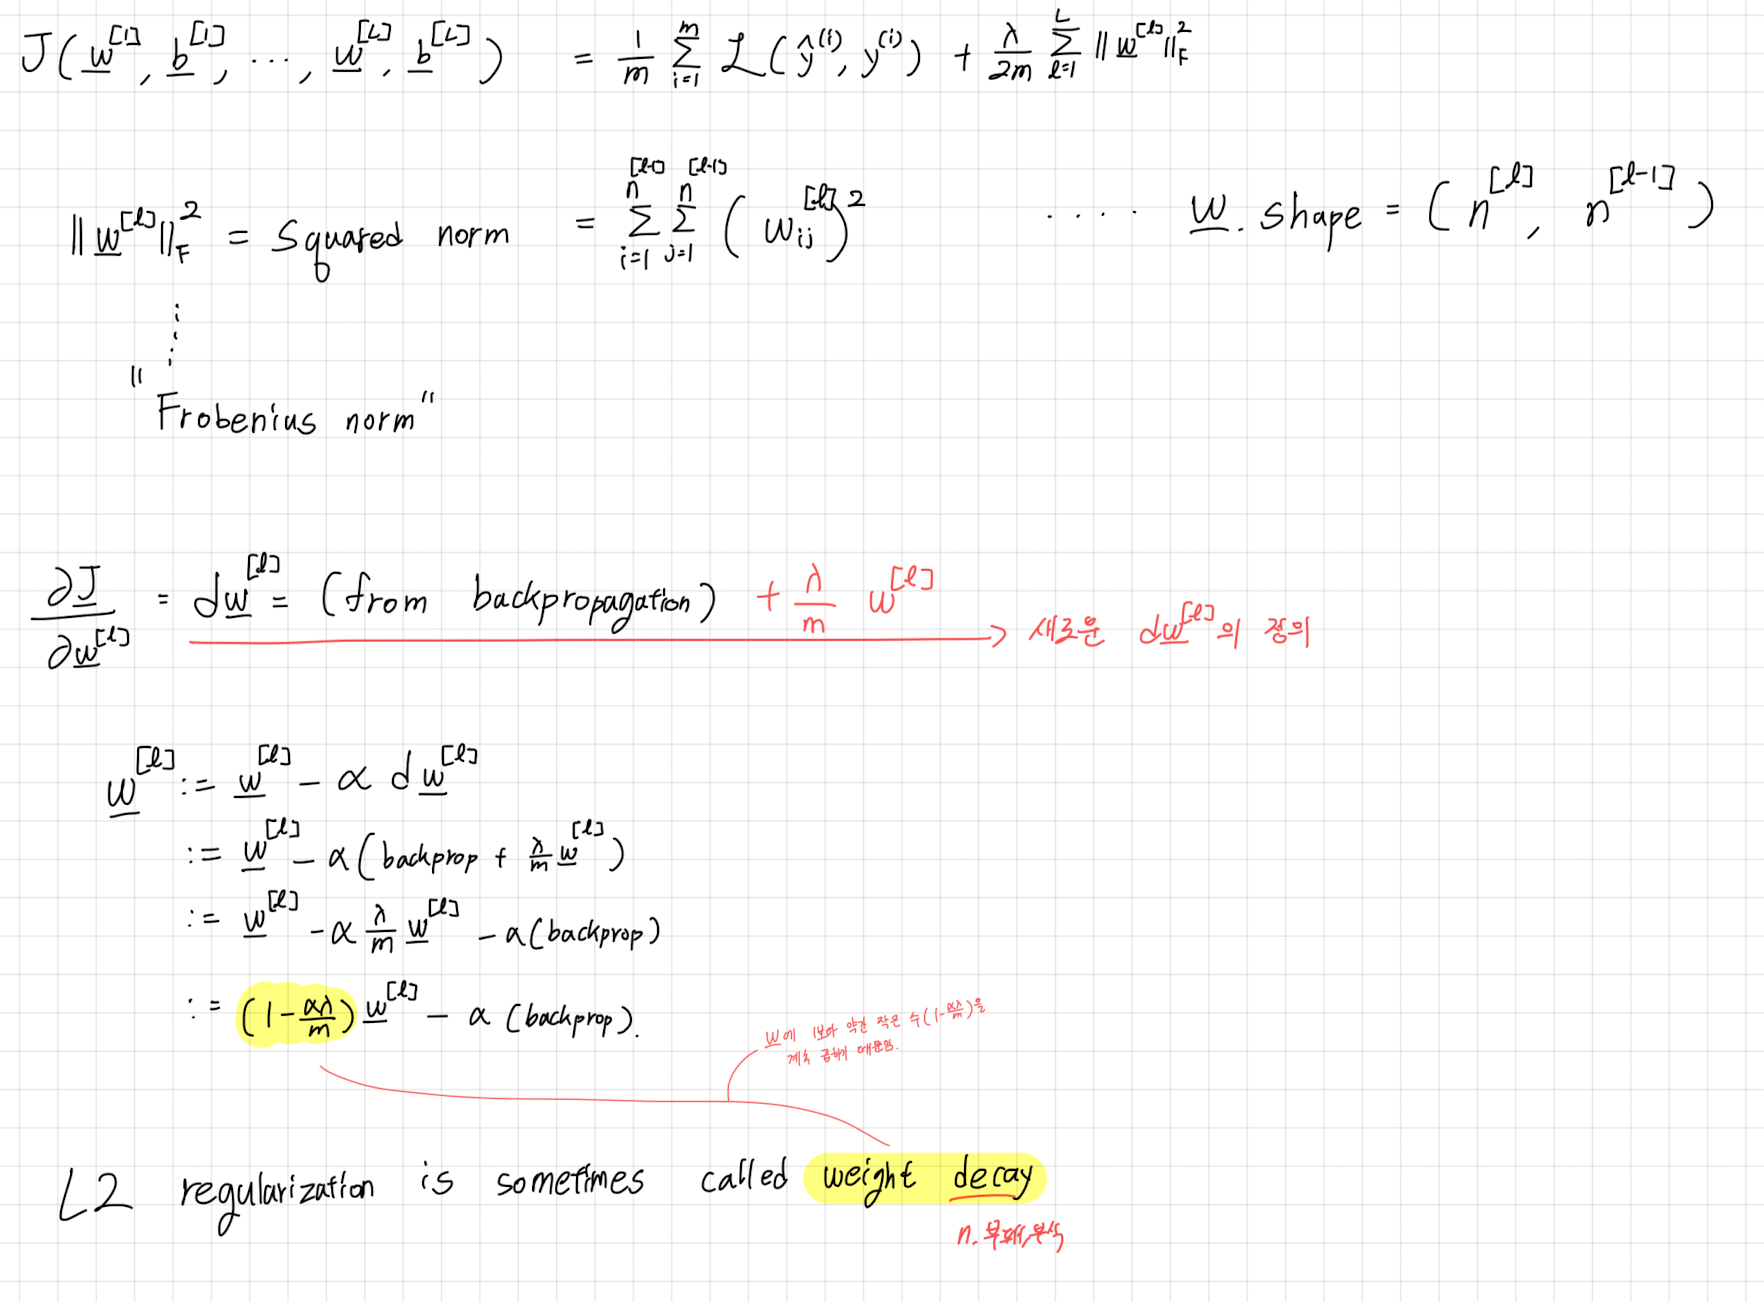 J(w^[1], b^[1], ..., w^[L], b^[L]) = 1/m Σ_{i=1}^{m} ℒ(ŷ^(i), y^(i)) + λ/2m Σ_{l=1}^{L} ||w^[l]||_F^2
||w^[l]||_F^2 = Squared norm = Σ_{i=1}^{n^[l-1]} Σ_{j=1}^{n^[l-1]} (w_ij^[l])^2 .... w.shape = (n^[l], n^[l-1])
"Frobenius norm"
∂J/∂w^[l] = dw^[l] = (from backpropagation) + λ/m w^[l]
→ 새로운 dw^[l]의 정의
w^[l] := w^[l] - α dw^[l]
:= w^[l] - α(backprop + λ/m w^[l])
:= w^[l] - α λ/m w^[l] - α(backprop)
:= (1 - αλ/m) w^[l] - α (backprop).
w에 1보다 약간 작은 수(1-αλ/m)을
계속 곱하기 때문임.
L2 regularization is sometimes called weight decay
n. 부패, 부식